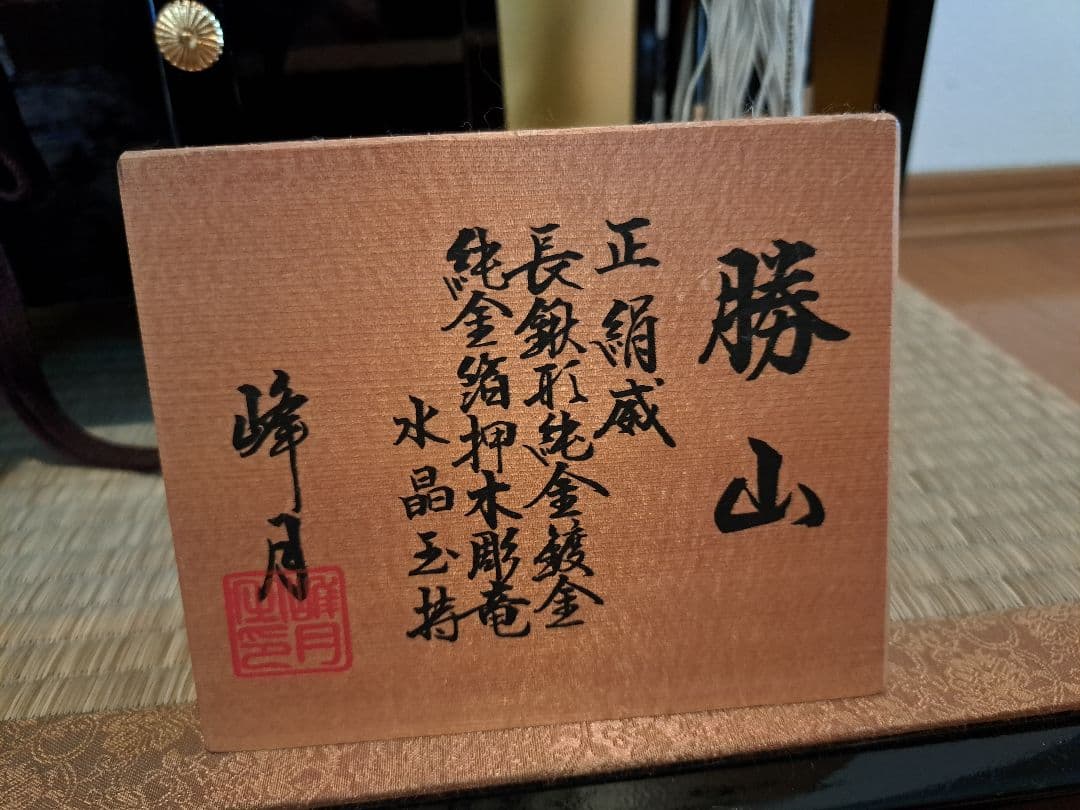 勝山
正絹威
長鍬形純金鍍金
純金箔押木彫竜
水晶玉持
峰月